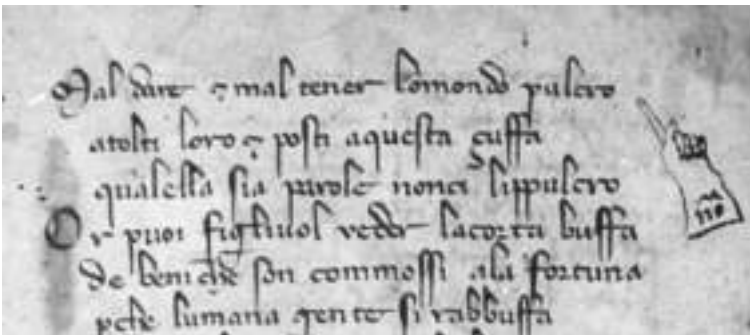 Mal dare ꞇ mal tener lomondo pulcro
atolti loro ꞇ posti aquesta çuffa
qualella sia parole nonci lippulcro
Or puoi figliuol veder lacorta buffa
de beni che son commossi ala fortuna
pche lumana gente si rabbuffa